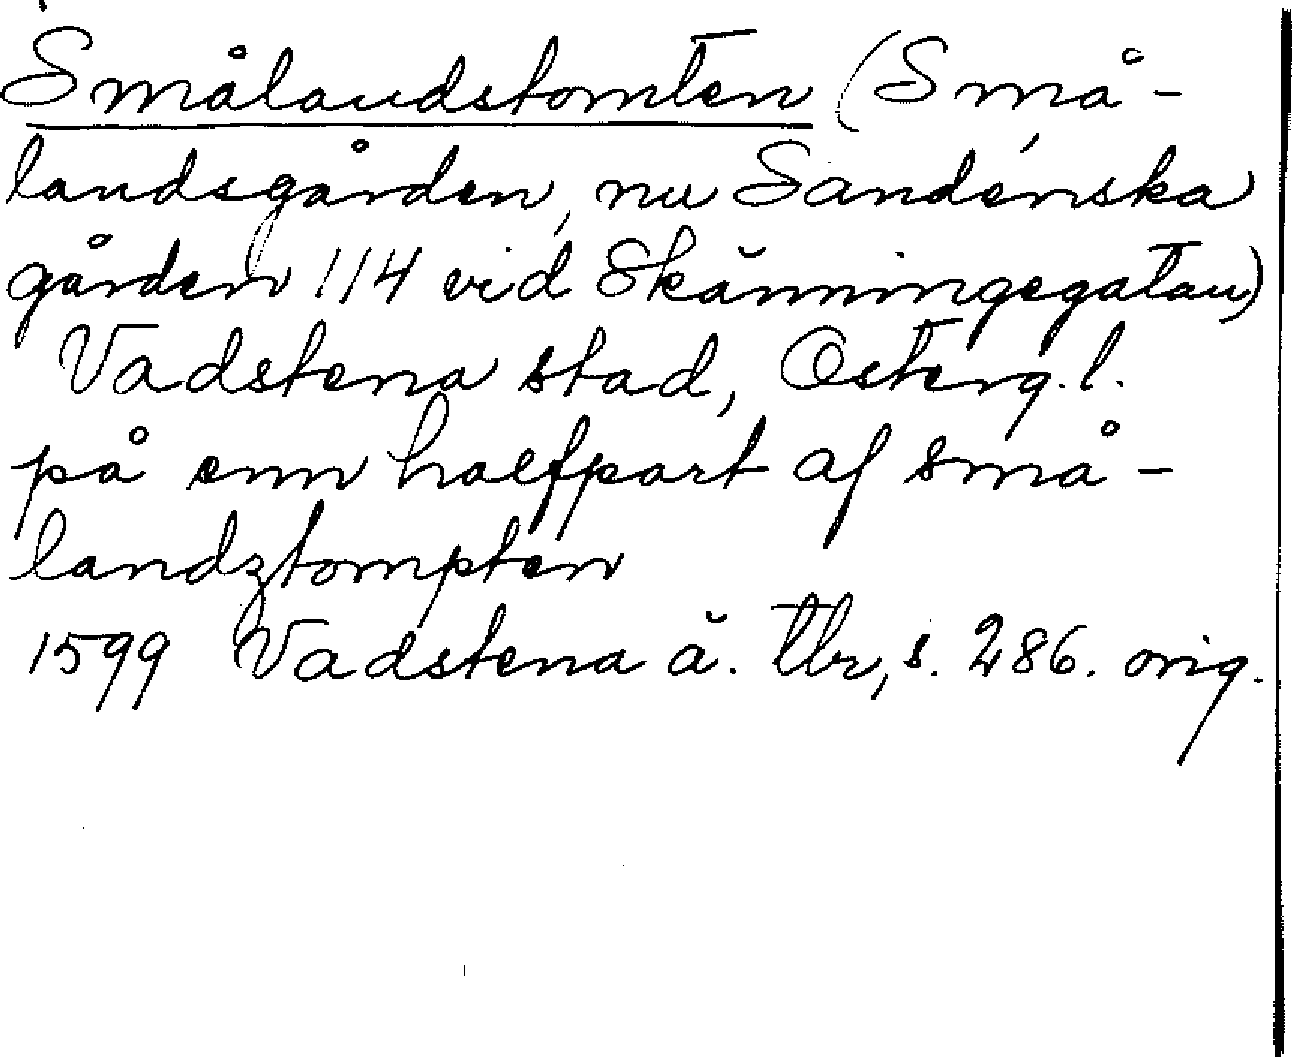 Smålandstomten (Små-
landsgården, nu Sandénska
gården 114 vid Skänningegatan)
Vadstena stad, Österg.l.
på enn halfpart af små-
landztompten
1599 Vadstena ä. tbr, s. 286. orig.